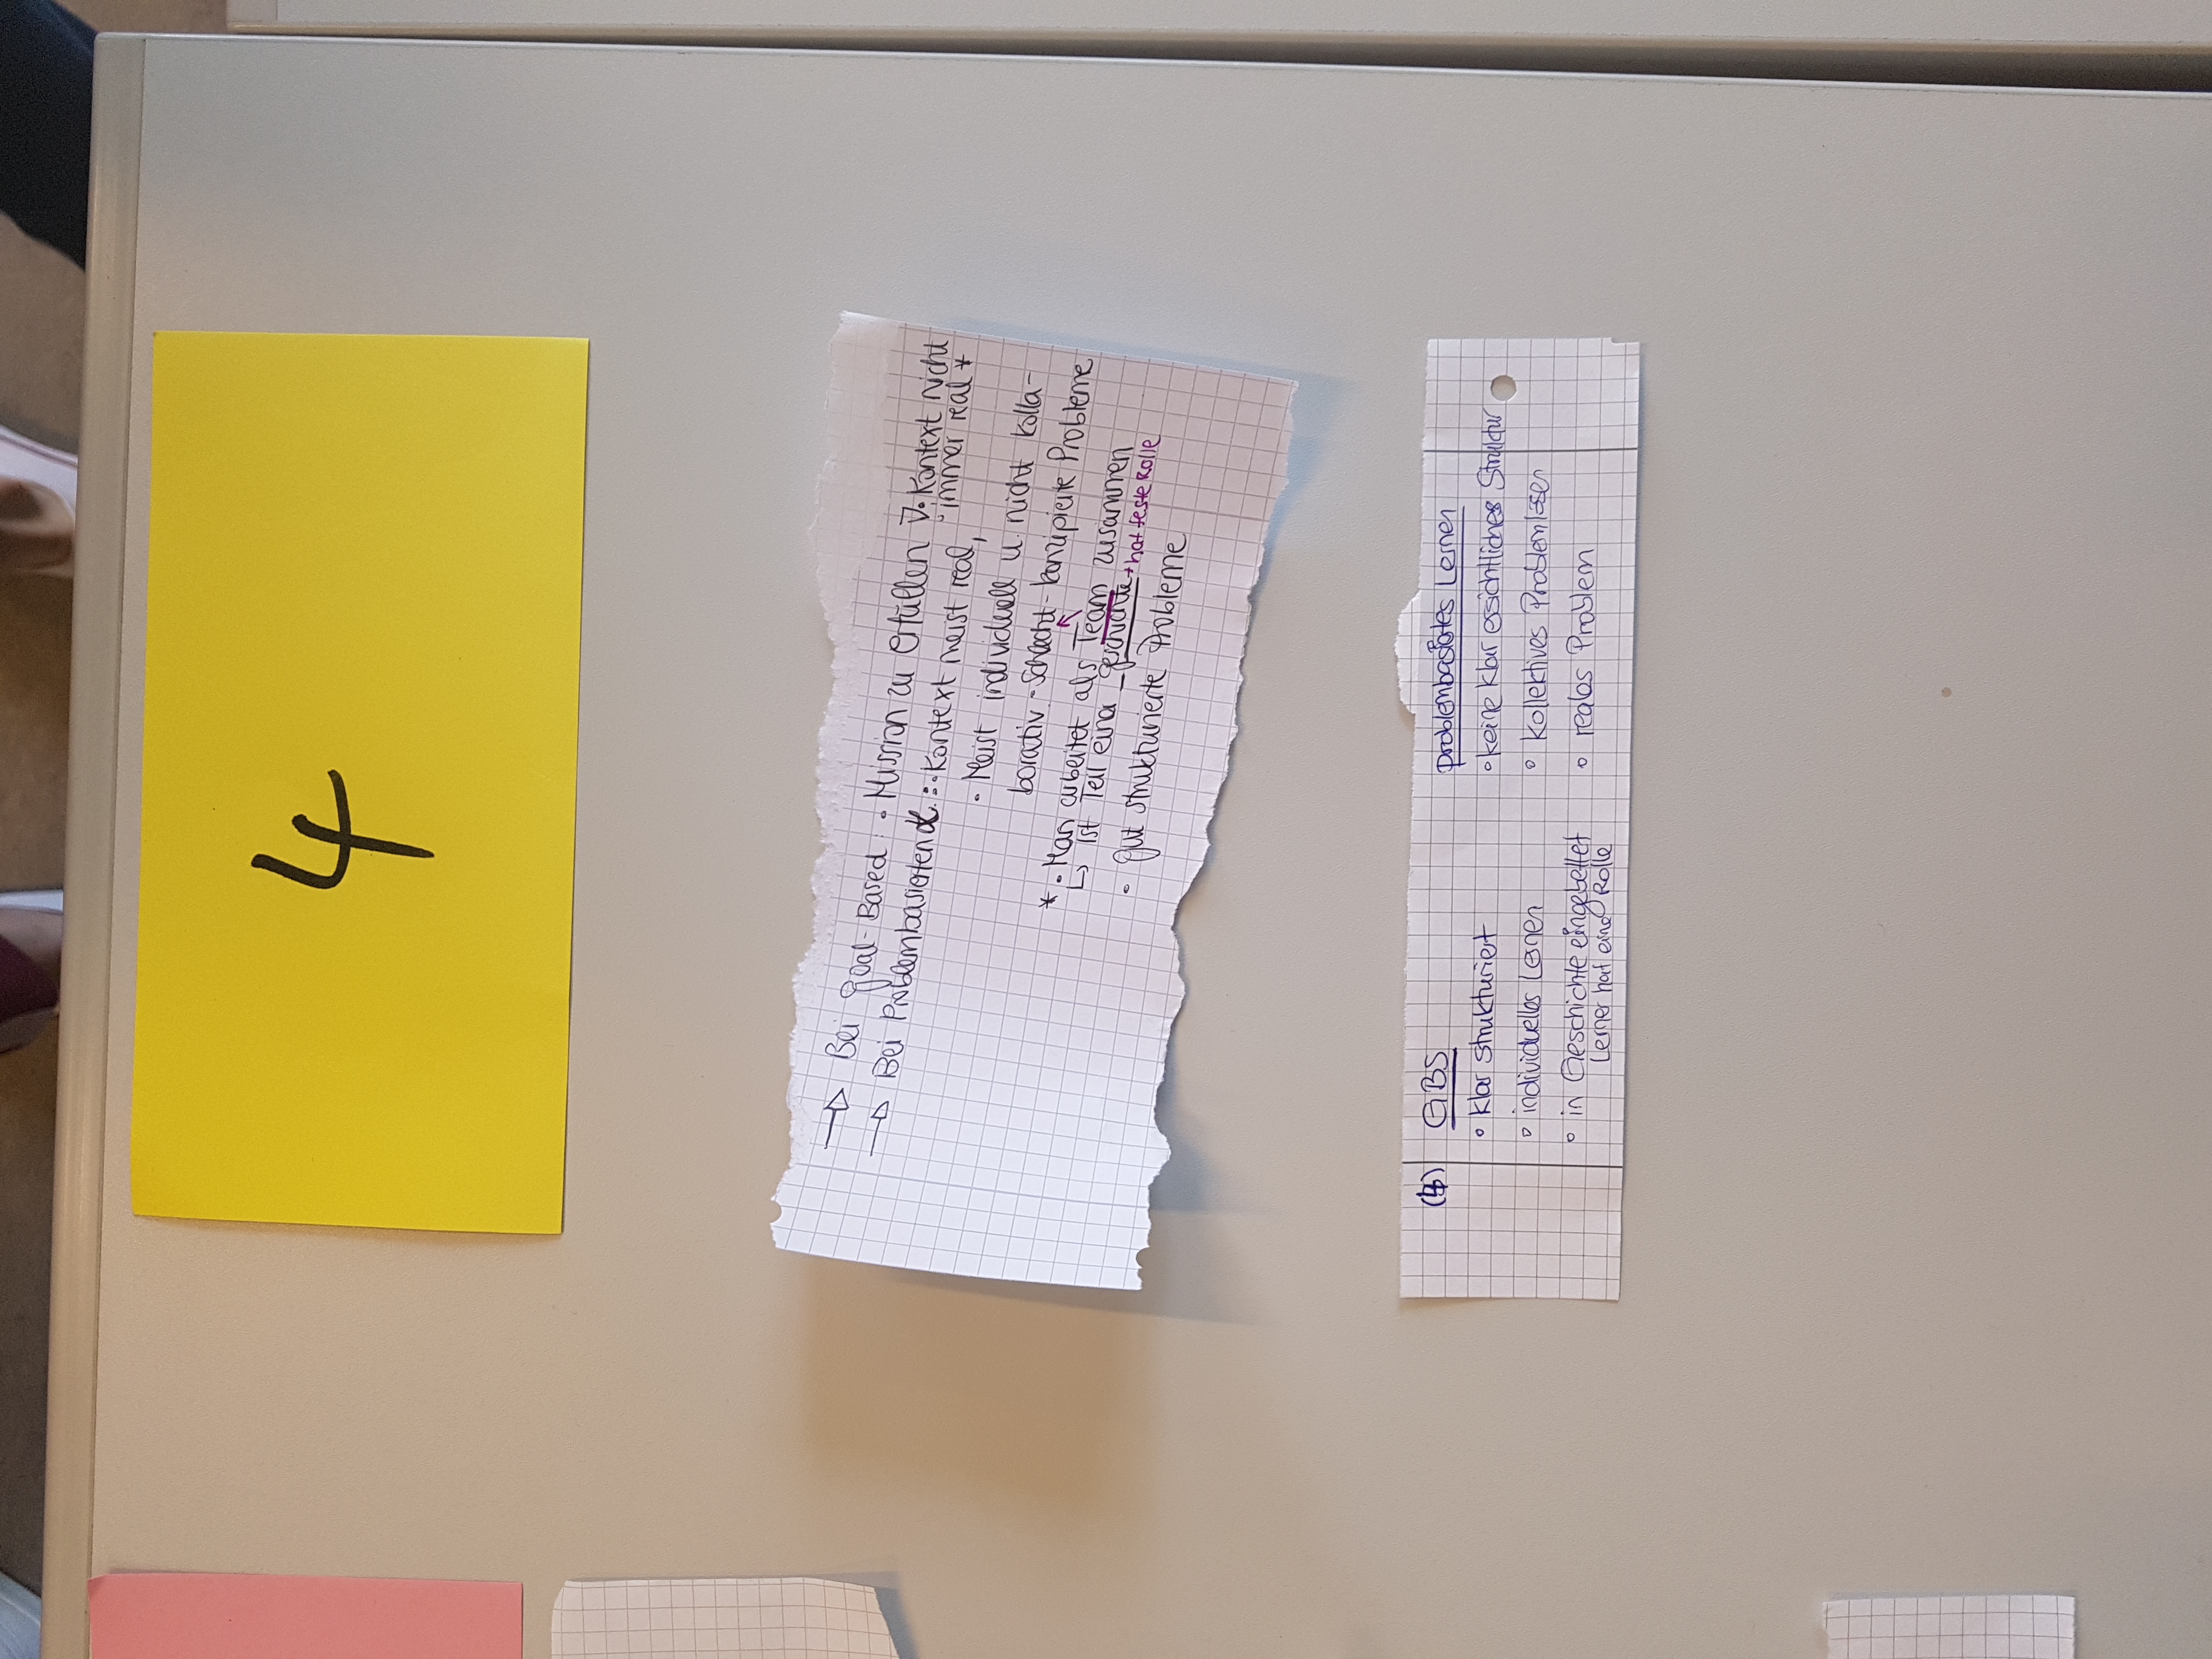 4
→ Bei Goal-Based: • Mission zu erfüllen • Kontext nicht
immer real *
→ Bei Problembasierten L.: • Kontext meist real,
• Meist individuell u. nicht kolla-
borativ - Schlecht - konzipierte Probleme
* • Man arbeitet als Team zusammen
↳ Ist Teil einer Geschichte + hat feste Rolle
• gut strukturierte Probleme
(4) GBS
◦ klar strukturiert
◦ individuelles Lernen
◦ in Geschichte eingebettet
Lerner hat eine Rolle
problembasiertes Lernen
◦ keine klar ersichtliches Struktur
◦ kollektives Problemlösen
◦ reales Problem